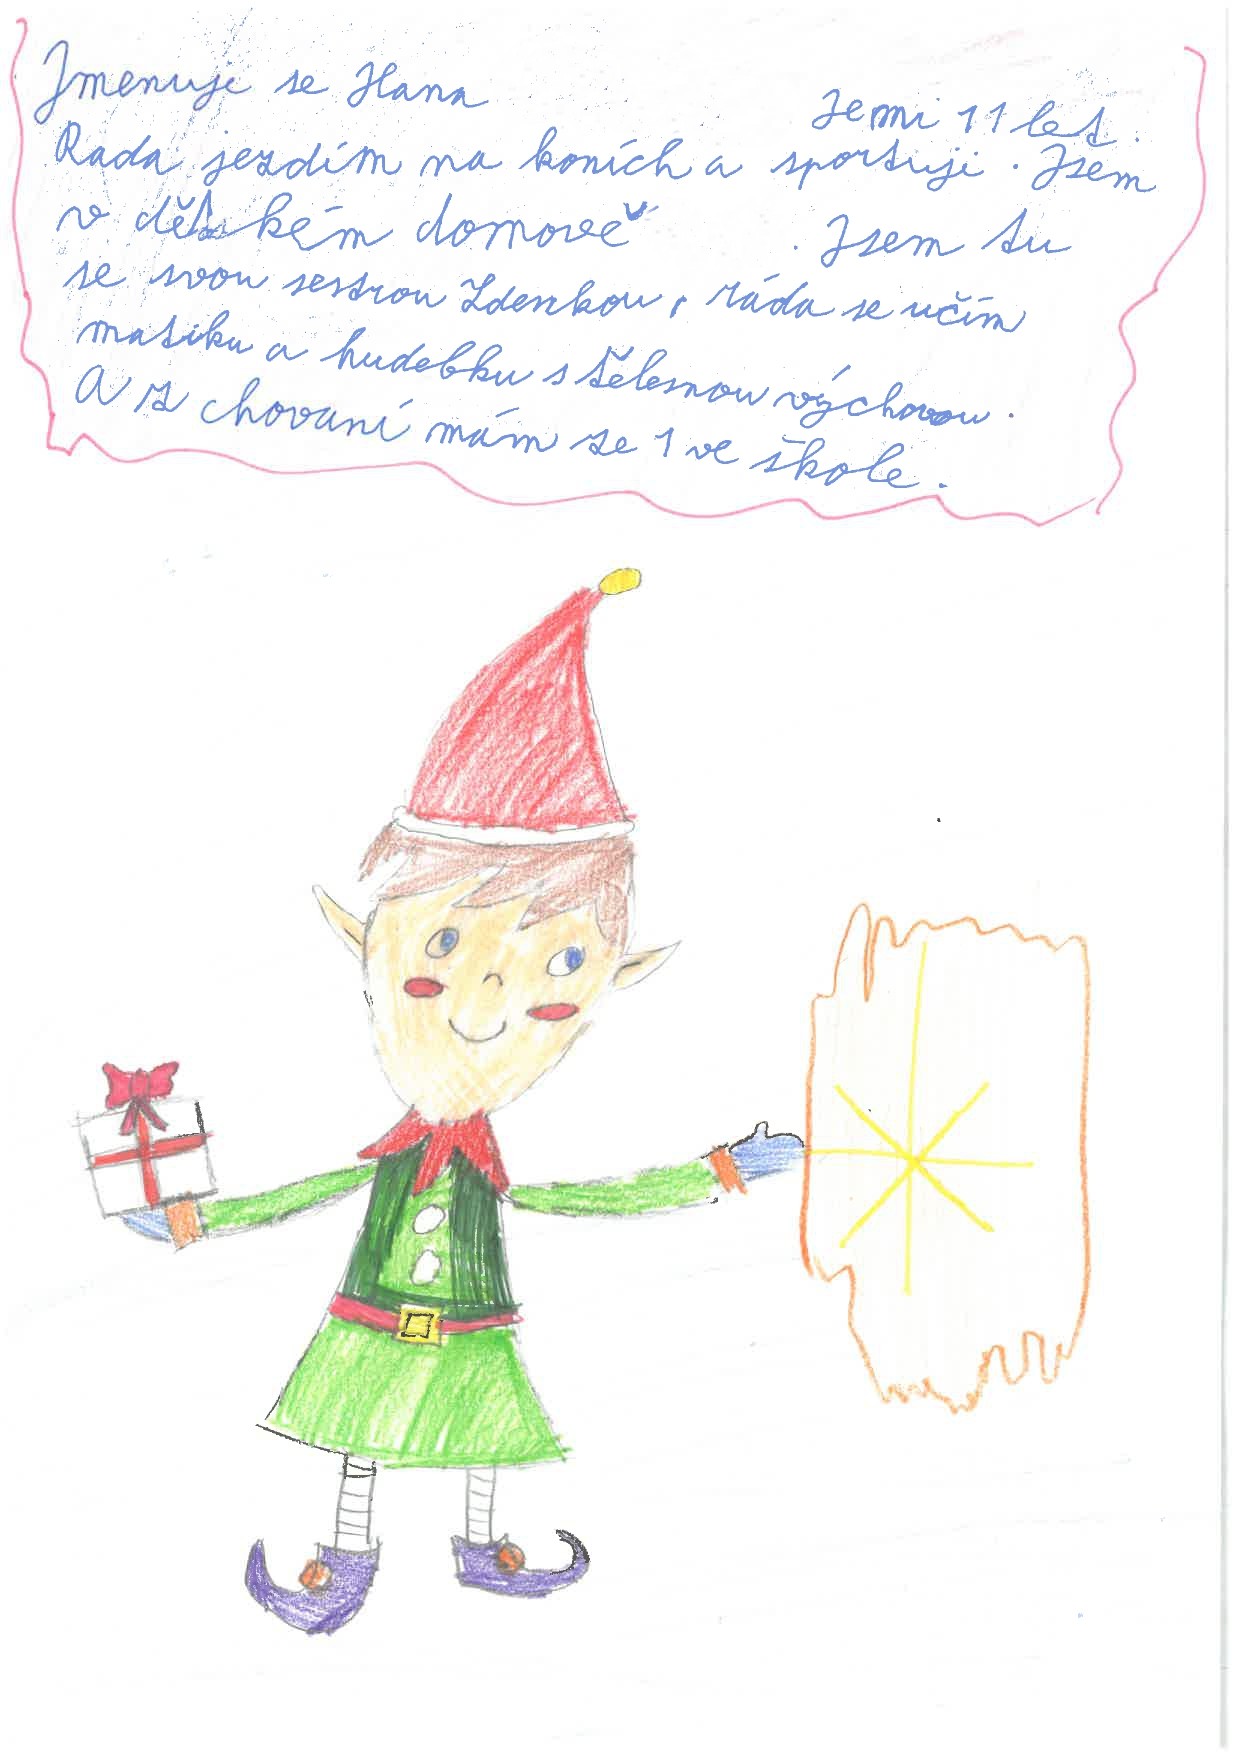 Jmenuje se Hana Je mi 11 let.
Rada jezdím na koních a sportuji. Jsem
v dětském domově . Jsem tu
se svou sestrou Zdenkou, ráda se učím
matiku a hudebku s tělesnou výchovou.
A z chovaní mám ze 1 ve škole.